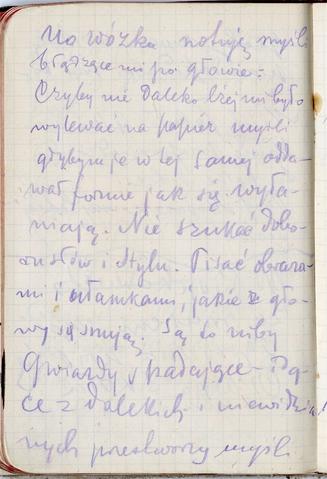 Na wózku notuję myśli
błądzące mi po głowie:
Czyby nie daleko lżej mi było
wylewać na papier myśli
gdybym je w tej samej odda-
wał formie jak się wyła-
niają. Nie szukać dobo-
ru słów i stylu. Pisać obraza-
mi i ułamkami, jakie gło-
wy się snują. Są to niby
gwiazdy spadające - idą-
ce z dalekich i niewidzial
nych przestworzy myśli